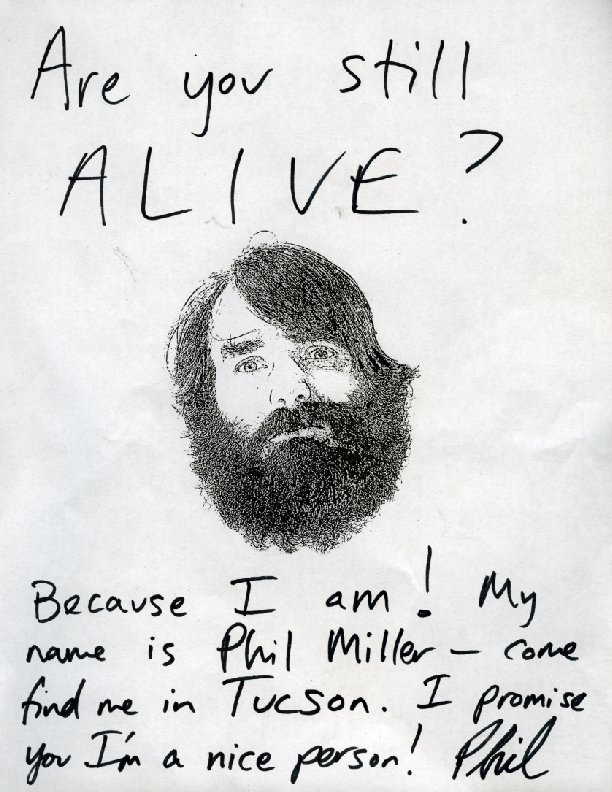 Are you still
ALIVE?
Because I am! My
name is Phil Miller – come
find me in Tucson. I promise
you I'm a nice person! Phil